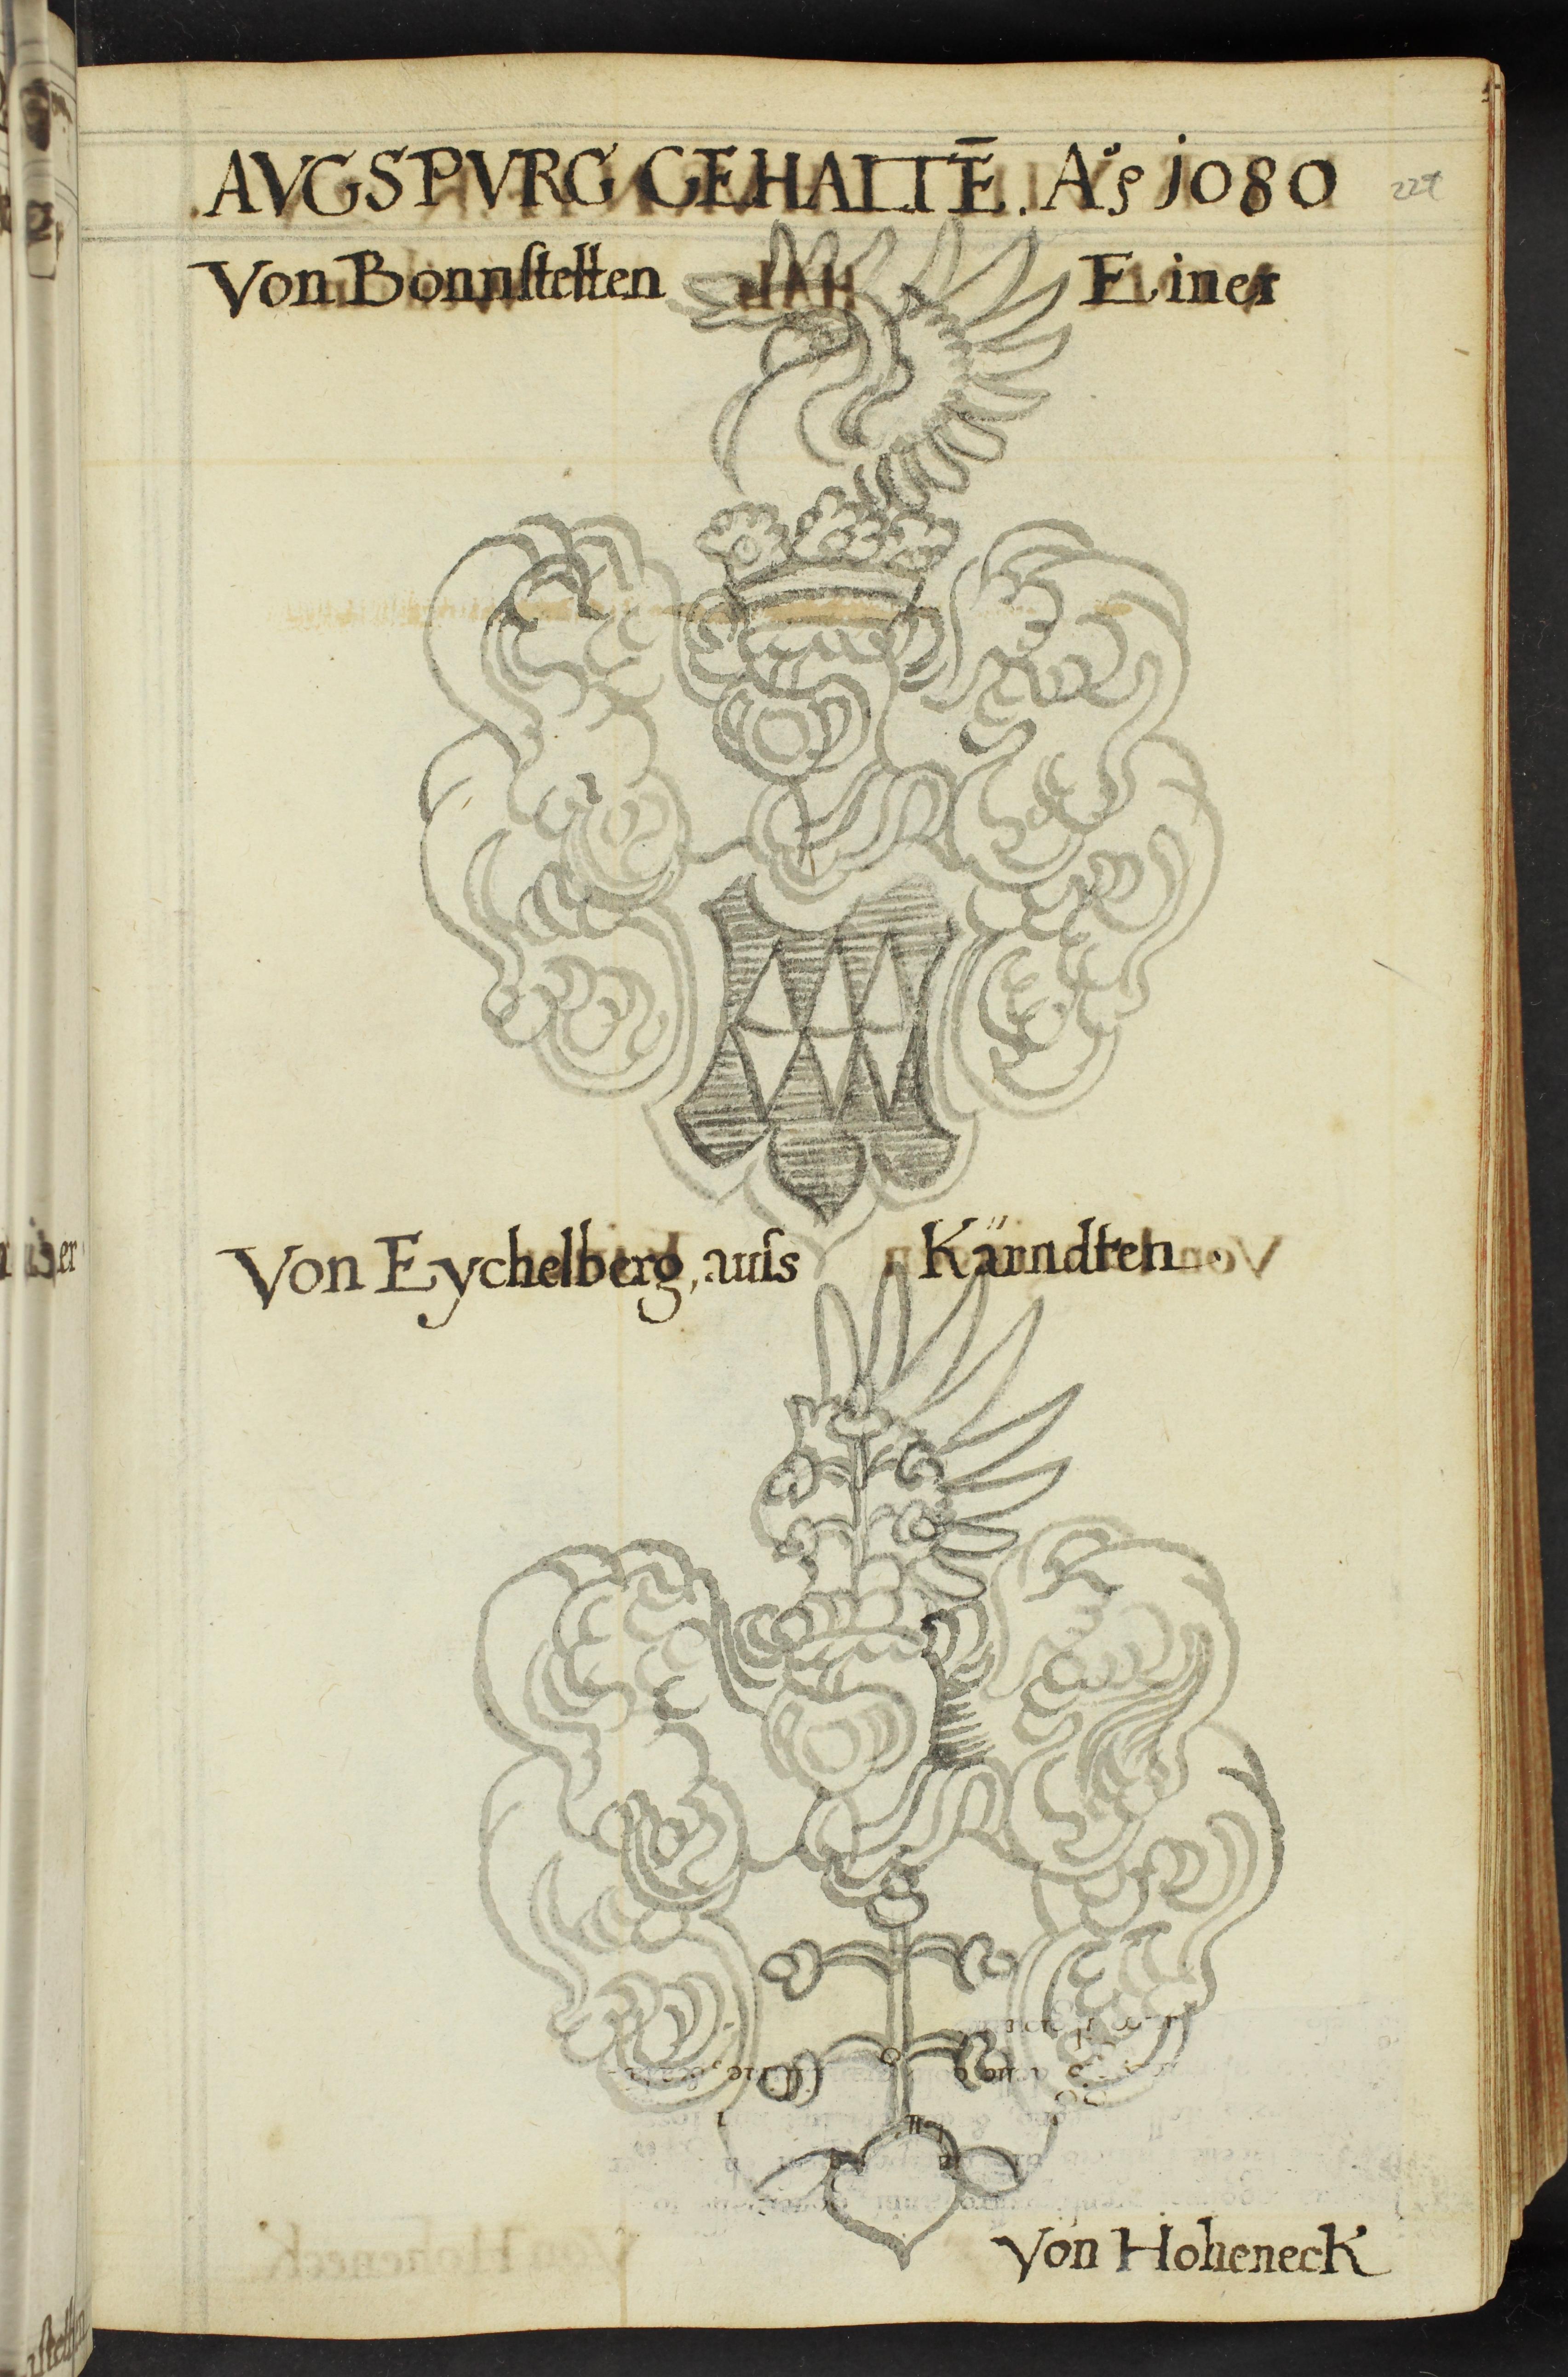 AVGSPVRG GEHALTĒ. A°ꝯ 1080
224
Von Bonnstetten Einer
Von Eychelberg, auſs Kärndten.
Von Hoheneck